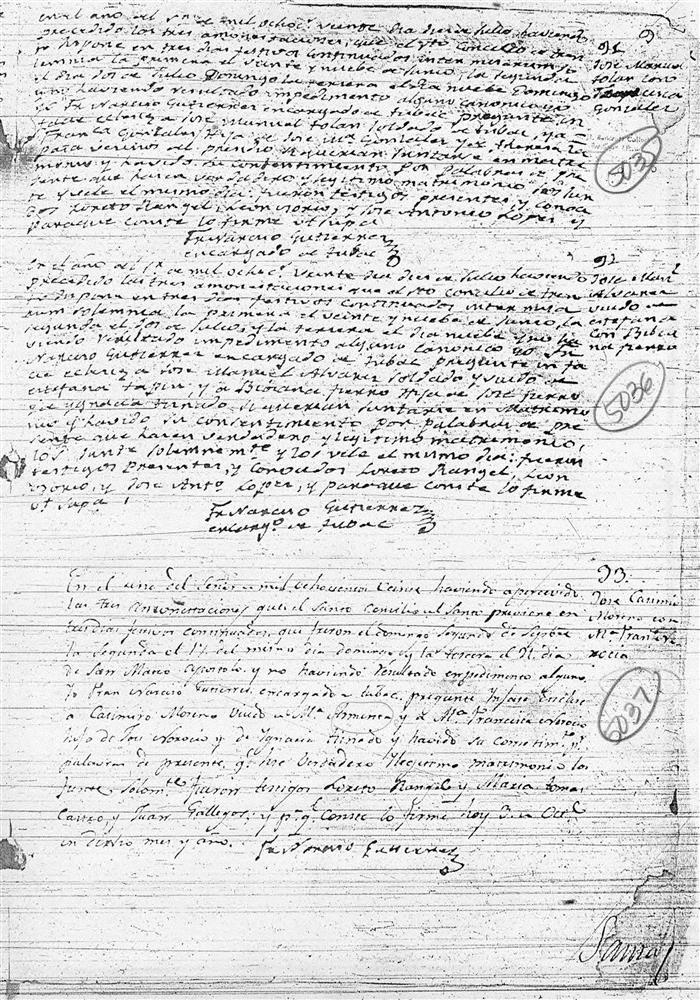 en el año del Sr de mil ochoc.s veinte dia diez de Julio haviend
precedido las tres amonestaciones, que el Sto Concilio de tren
to dispone en tres dias festivos continuados inter misarum so
lemnia la primera el veinte y nuebe de Junio, la segunda
el dia dos de Julio Domingo la tersera el dia nuebe Domingo
y no haviendo resultado impedimento alguno canonico yo
Fr. Narciso Gutierrez encargado de tubac pregunte in
facie eclecia a Jose Manuel tolan soldado de tubac, y a
Franca Gonzales, hija de Jose Ma Gonzales y de
para vecinos del precidio si querian juntarse en matri
monio, y havido su consentimiento por palabras de pre
sente que hacen verdadero, y legitimo matrimonio los jun
te y vele el mismo dia: fueron testigos presentes, y conoci
dos Loreto Rangel, Leon osorio, y Jose Antonio Lopes y
para que conste lo firme ut supra
Fr Narciso Gutierrez
encargado de tubac
91
Jose Manuel
tolan con
Francisca
Gonzalez
5035
En el año del Sr de mil ochoc.s veinte dia diez de Julio haviendo
precedido las tres amonestaciones que el sto Conzilio de tren
to dispone en tres dias festivos continuados inter misa
rum solemnia, la primera el veinte y nuebe de Junio, la
segunda el dos de Julio, y la tersera el dia nuebe y no ha
viendo resultado impedimento alguno canonico yo Fr
Narciso Gutierrez encargado de tubac pregunte in fa
cie eclecia a Jose Manuel Alvares soldado y viudo de
estefana tapia, y a Bibiana fierro hija de Jose fierro
y de Ygnacia tirado si querian juntarse en Matrimo
nio y havido su consentimiento por palabras de pre
sente que hacen verdadero y legitimo matrimonio,
los junte solemnemte y los vele el mismo dia: fueron
testigos presentes, y conocidos Loreto Rangel, Leon
osorio, y Jose Anto Lopes, y para que conste lo firme
ut supra
Fr Narciso Gutierrez
encargo de tubac
92
Jose Manl
Alvares
viudo de
estefana
con Bibia
na fierro
5036
En el año del Señor de mil ochosentos Veinte haviendo apercevido
las tres amonestaciones que el Santo Consilio de Santo previene en
tres dias festivos continuados, que fueron el domingo Segundo de Septbre
la Segunda el 17 del mismo dia domingo y la tersera el 21 dia
de San Mateo Apostolo y no haviendo Resultado enpedimento alguno
Yo Fran Narciso Gutierres encargado a tubac, pregunte Infasie Ecclise
a Casimiro Moreno Viudo de Ma Armenta y a Ma Francisca
hija de Jose y de Ignacia tirado y havido su consetimto pr
palabras de presente, qe hase Verdadero Ylegitimo matrimonio los
Junte Solemte fueron testigos Loreto Rangel y Maria tomasa
Castro y Juan Gallegos, y pa qe Conste lo firme hoy 3 de Octe
en dicho mes y año. Fr Narciso Gutierrez
93
Jose Casimiro
Moreno con
Ma Franca
5037